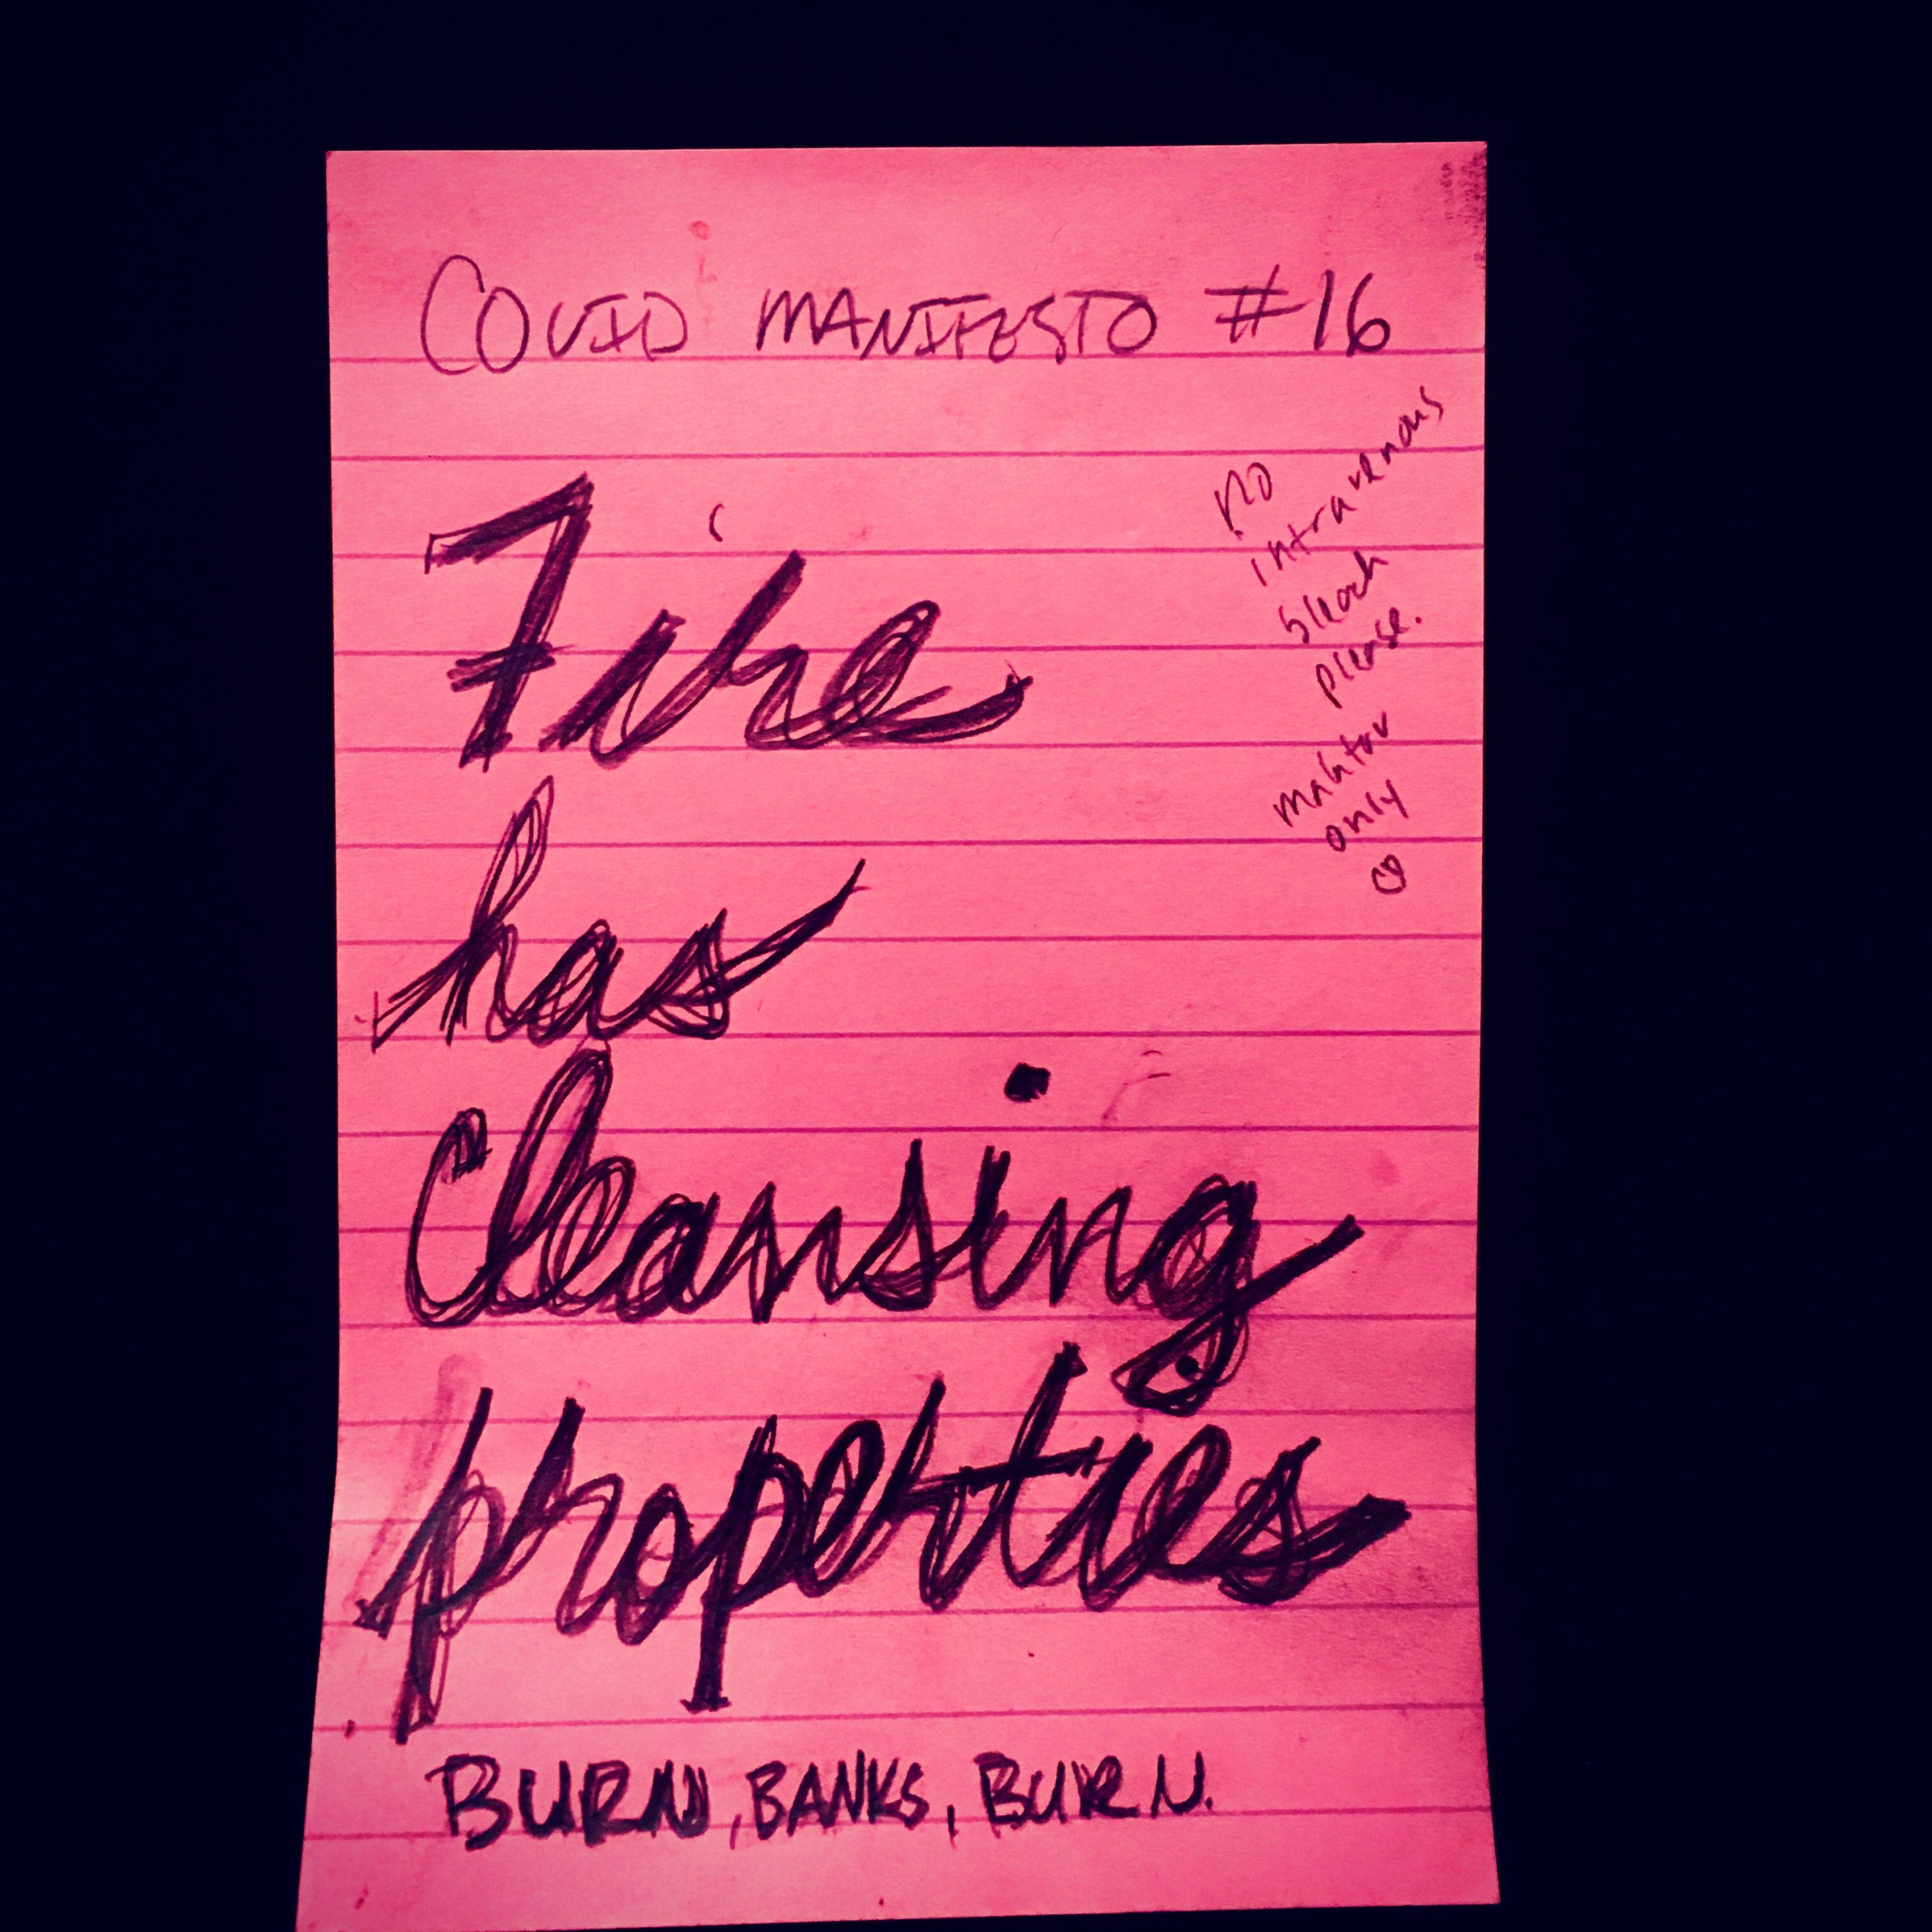 COVID MANIFESTO #16
no
intravenous
bleach
please.
only
Fire
has
Cleansing
properties
BURN, BANKS, BURN.